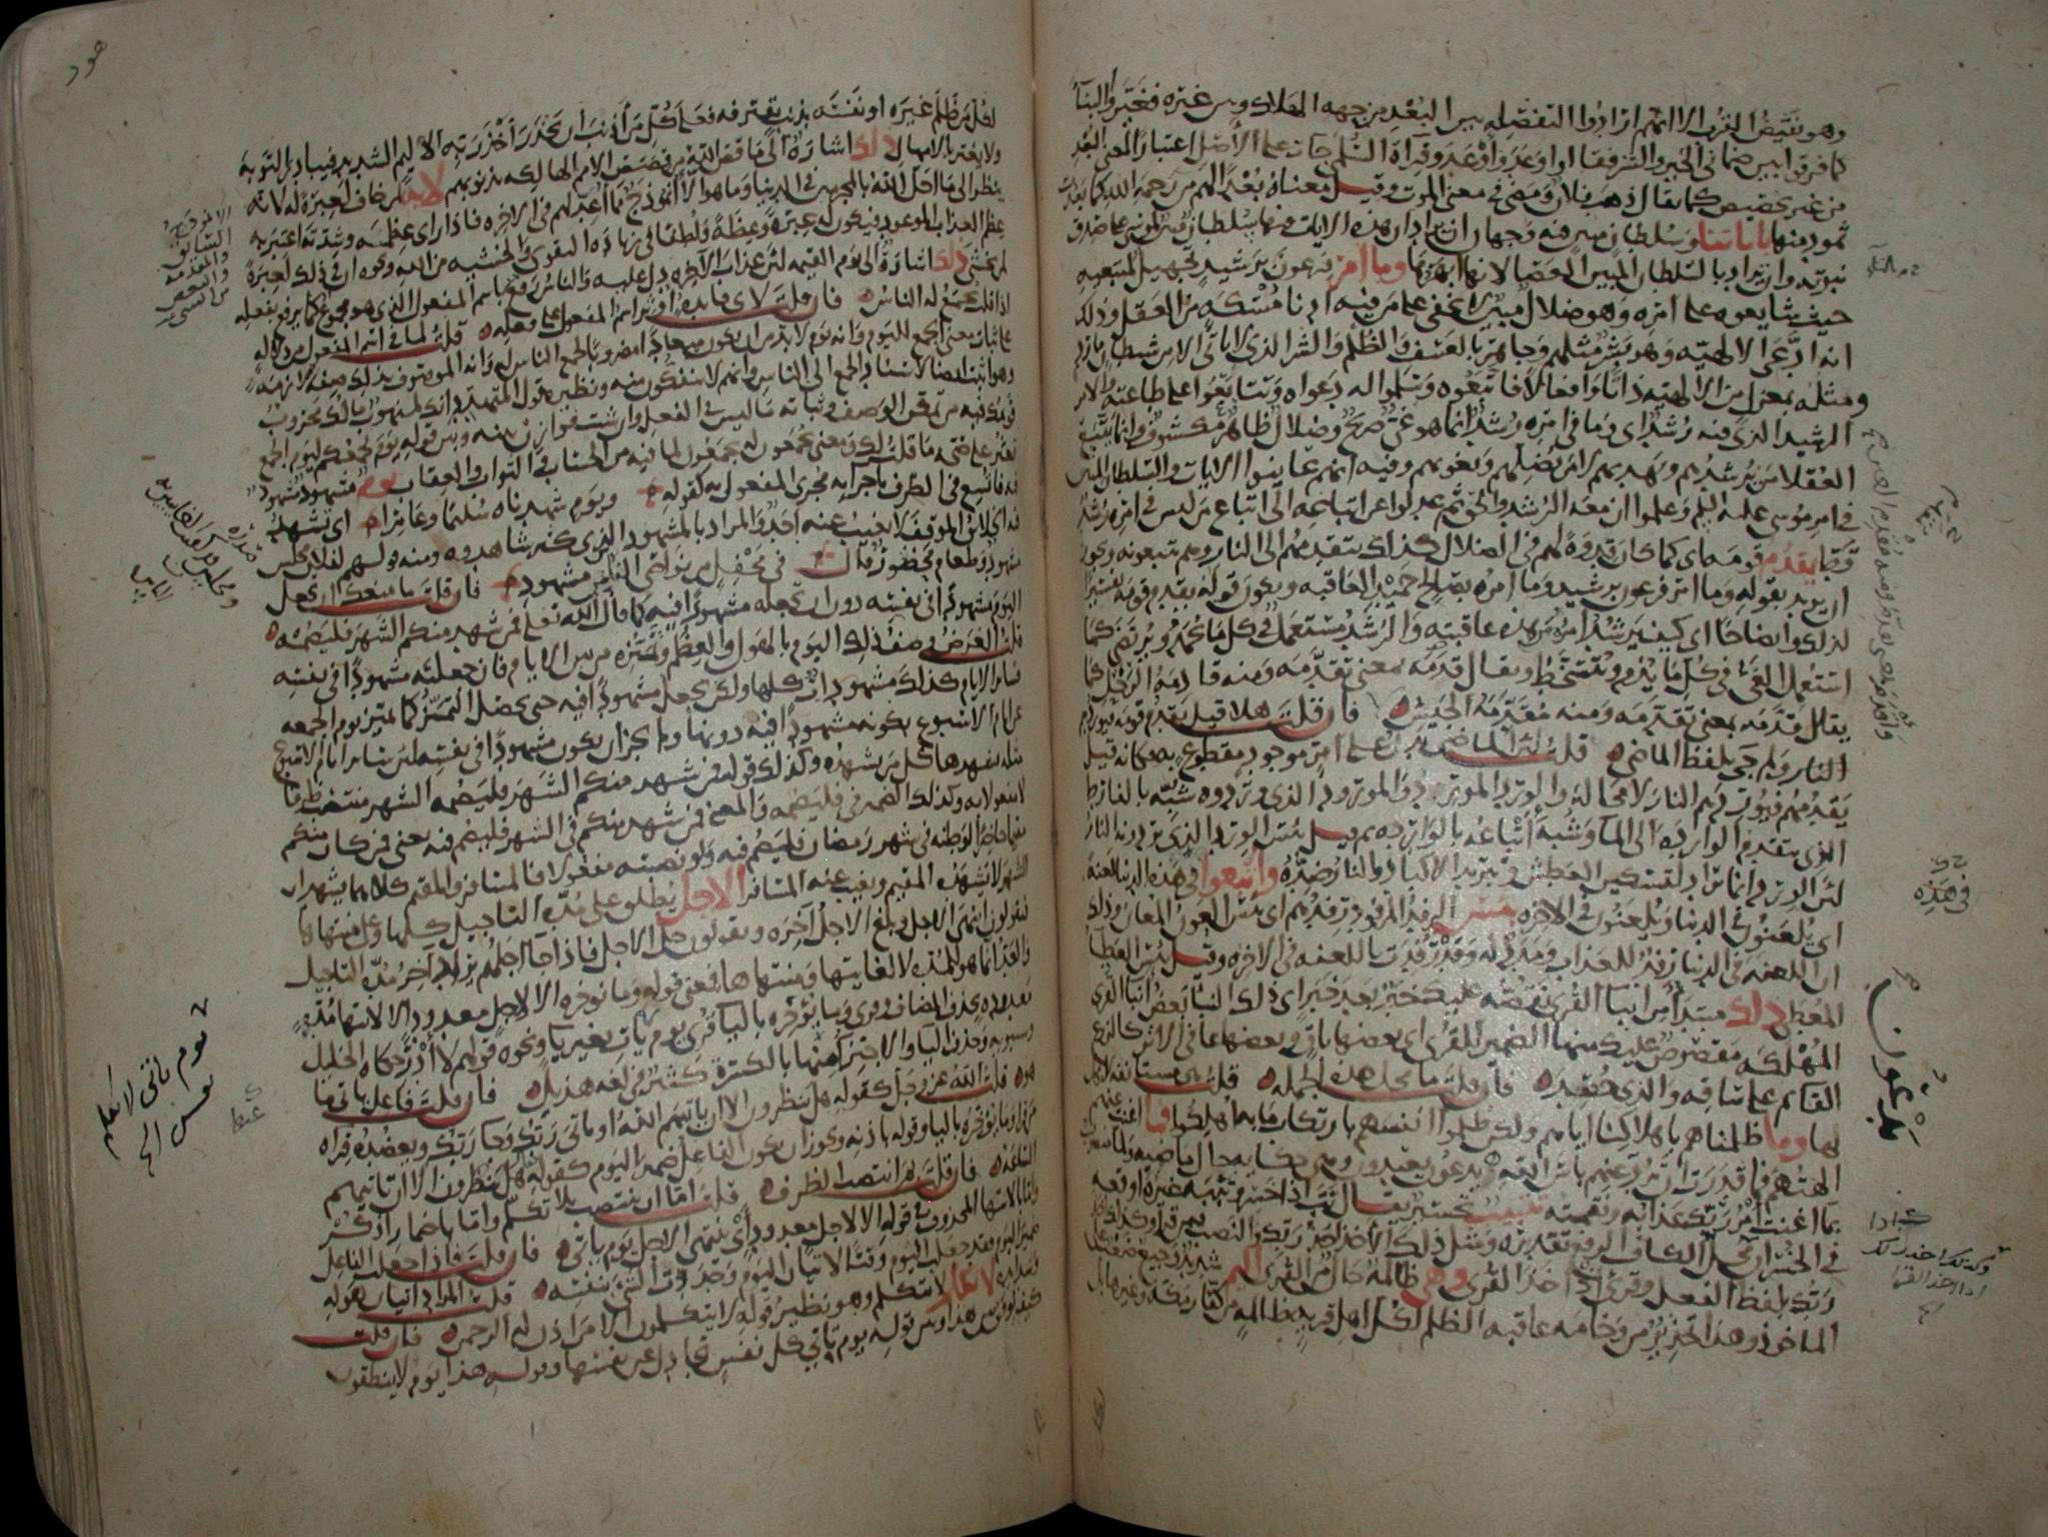 وهو نقيض القرب الا انهم ارادوا التفصله بين البعد من جهه الهلاك وبين غيره فغيروا البنا
كما فرقوا بين ضماني الخير والشر فقالوا وعد واوعد وقراة السلمي جات على الاصل اعتبارا لمعنى البعد
من غير تخصيص كما يقال ذهب فلان ومضى في معنى الموت وقيل معناه بعدا لهم من رحمة الله كما بعدت
ثمود منها باياتنا وسلطان مبين فيه وجهان ان يراد ان هذه الايات فيها سلطان مبين لموسى على صدق
نبوته وان يراد بالسلطان المبين العصا لانها ابهرها وما امر فرعون برشيد تجهيل لمتبعيه
حيث شايعوه على امره وهو ضلال مبين لا يخفى على من فيه ادنا مسكه من العقل وذلك
انه ادعى الالهيه وهو بشر مثلهم وجاهر بالعسف والظلم والشر الذي لا ياتي الا من شيطان مارد
ومثله بمعزل من الالهيه ذاتا وافعالا فاتبعوه وسلموا له دعواه وتتابعوا على طاعته والامر
الرشيد الذي فيه رشد اي وما في امره رشد انما هو غي صريح وضلال ظاهر مكشوف وانما يتبع
العقلا من يرشدهم ويهديهم لا من يضلهم ويغويهم وفيه انهم عاينوا الايات والسلطان المبين
في امر موسى عليه السلم وعلموا ان معه الرشد والحق ثم عدلوا عن اتباعه الى اتباع من ليس في امره رشد
قط يقدم قومه اي كما كان قدوة لهم في الضلال كذلك يتقدمهم الى النار وهم يتبعونه ويجوز
ان يريد بقوله وما امر فرعون برشيد وما امره بصالح حميد العاقبه ويكون قوله يقدم قومه تفسيرا
لذلك وايضاحا اي كيف يرشد امر من هذه عاقبته والرشد مستعمل في كل ما يحمد ويرتضى كما
استعمل الغي في كل ما يذم ويتسخط ويقال قدمه بمعنى تقدمه ومنه قادمة الرحل كما
يقال قدمه بمعنى تقدمه ومنه مقدمة الجيش فان قلت هلا قيل يقدم قومه فيوردهم
النار ولم جي بلفظ الماضي قلت لان الماضي يدل على امر موجود مقطوع به فكانه قيل
يقدمهم فيوردهم النار لا محالة والورد المورد والمورود الذي وردوه شبه بالفارط
الذي يتقدم الواردة الى الما وشبه اتباعه بالواردة ثم قيل بئس الورد الذي يردونه النار
لان الورد انما يراد لتسكين العطش وتبريد الاكباد والنار ضده واتبعوا في هذه الدنيا لعنة
اي يلعنون في الدنيا ويلعنون في الاخره بئس الرفد المرفود رفدهم اي بئس العون المعان وذلك
ان اللعنه في الدنيا رفد للعذاب ومدد له وقد رفدت باللعنه في الاخره وقيل بئس العطا
المعطى ذلك مبتدا من انبا القرى نقصه عليك خبر بعد خبر اي ذلك النبا بعض انبا القرى
المهلكه مقصوص عليك منها الضمير للقرى اي بعضها باق وبعضها عافي الاثر كالزرع
القايم على ساقه والذي حصد فان قلت ما محل هذه الجمله قلت هي مستانفه لا محل
لها وما ظلمناهم باهلاكنا اياهم ولكن ظلموا انفسهم بارتكاب ما به اهلكوا فما اغنت عنهم
الهتهم فما قدرت ان ترد عنهم باس الله يدعون يعبدون وهي حكايه حال ماضيه ولما منصوب
بما اغنت امر ربك عذابه ونقمته تتبيب تخسير يقال تب اذا خسر وتببه غيره اوقعه
في الخسران محل الكاف الرفع تقديره ومثل ذلك الاخذ اخذ ربك والنصب فيمن قرا وكذلك اخذ
ربك بلفظ الفعل وقرئ اذ اخذ القرى وهي ظالمه حال من القرى اليم شديد وجيع صعب على
الماخوذ وهذا تحذير من وخامه عاقبه الظلم لكل اهل قريه ظالمه من كفار مكه وغيرها بل
في هذه
يدعون
وكذلك اخذ ربك
اذا اخذ القرى
هود
لكل من ظلم غيره او نفسه بذنب يقترفه فعلى كل من اذنب ان يحذر اخذ ربه الاليم الشديد فيبادر التوبه
ولا يغتر بالامهال ذلك اشارة الى ما قص الله من قصص الامم الهالكه بذنوبهم لاية لمن خاف لعبرة له لانه
ينظر الى ما احل الله بالمجرمين في الدنيا وما هو الا انموذج مما اعد لهم في الاخره فاذا راى عظمه وشدته اعتبر به
عظم العذاب الموعود فيكون له عبرة وعظة ولطفا في زيادة التقوى والخشيه من الله ونحوه ان في ذلك لعبرة
لمن يخشى ذلك اشارة الى يوم القيمه لان عذاب الاخره دل عليه والناس رفع باسم المفعول الذي هو مجموع كما يرفع بفعله
اذا قلت يجمع له الناس فان قلت لاي فايده اوثر اسم المفعول على فعله قلت لما في اسم المفعول من دلاله
على ثبات معنى الجمع لليوم وانه يوم لا بد من ان يكون ميعادا مضروبا لجمع الناس له وانه الموصوف بذلك صفه لازمه
وهو اثبت ايضا لاسناد الجمع الى الناس وانهم لا ينفكون منه ونظيره قول المتهدد انك لمنهوب مالك محروب
قومك فيه من تمكن الوصف وثباته ما ليس في الفعل وان شئت فوازن بينه وبين قوله يوم يجمعكم ليوم الجمع
تعثر على صحه ما قلت لك ومعنى يجمعون له يجمعون لما فيه من الحساب والثواب والعقاب يوم مشهود مشهود
فيه فاتسع في الظرف باجرايه مجرى المفعول به كقوله ويوم شهدناه سليما وعامرا اي تشهد
فيه الخلائق الموقف لا يغيب عنه احد والمراد بالمشهود الذي كثر شاهدوه ومنه قولهم لفلان مجلس
مشهود وطعام محضور قال في محفل من نواصي الناس مشهود فان قلت ما منعك ان تجعل
اليوم مشهودا في نفسه دون ان تجعله مشهودا فيه كما قال الله تعلى فمن شهد منكم الشهر فليصمه
قلت الغرض وصف ذلك اليوم بالهول والعظم وتميزه من بين الايام فان جعلته مشهودا في نفسه
فساير الايام كذلك مشهودات كلها ولكن يجعل مشهودا فيه حتى يحصل التميز كما تميز يوم الجمعه
عن ايام الاسبوع بكونه مشهودا فيه دونها ولم يجز ان يكون مشهودا في نفسه لان ساير ايام الاسبوع
مثله يشهدها كل من يشهده وكذلك قوله فمن شهد منكم الشهر فليصمه الشهر منتصب ظرفا
لا مفعولا به وكذلك الضمير في فليصمه والمعنى فمن شهد منكم في الشهر فليصم فيه يعني فمن كان منكم
مقيما حاضرا لوطنه في شهر رمضان فليصم فيه ولو نصبته مفعولا فالمسافر والمقيم كلاهما يشهدان
الشهر لا يشهده المقيم ويغيب عنه المسافر الاجل يطلق على مدة التاجيل كلها وعلى منتهاها
فيقولون انتهى الاجل وبلغ الاجل اخره ويقولون حل الاجل فاذا جا اجلهم يراد اخر مده التاجيل
والعد انما هو للمده لا لغايتها ومنتهاها فمعنى قوله وما نوخره الا لاجل معدود الا لانتها مده
معدوده بحذف المضاف وقرئ وما يؤخره باليا قرئ يوم يات بغير يا ونحوه قولهم لا ادر حكاه الخليل
وسيبويه وحذف اليا والاجتزا عنها بالكسرة كثير في لغه هذيل فان قلت فاعل ياتي ما
هو قلت الله عز وجل كقوله هل ينظرون الا ان ياتيهم الله او ياتي ربك وجا ربك ويعضده قراه
من قرا وما يؤخره باليا وقوله باذنه ويجوز ان يكون الفاعل ضمير اليوم كقوله هل ينظرون الا ان تاتيهم
الساعه فان قلت بم انتصب الظرف قلت اما ان ينتصب بلا تكلم واما باضمار اذكر
واما بالانتها المحذوف في قوله الا لاجل معدود اي ينتهي الاجل يوم ياتي فان قلت فاذا جعلت الفاعل
ضمير اليوم فقد جعلت اليوم وقتا لاتيان اليوم وحددت الشي بنفسه قلت المراد اتيان هوله
وشدايده لا تكلم لا تتكلم وهو نظير قوله لا يتكلمون الا من اذن له الرحمن فان قلت
كيف يوفق بين هذا وبين قوله يوم تاتي كل نفس تجادل عن نفسها وقوله هذا يوم لا ينطقون
يوم ياتي لا تكلم
نفس الخ